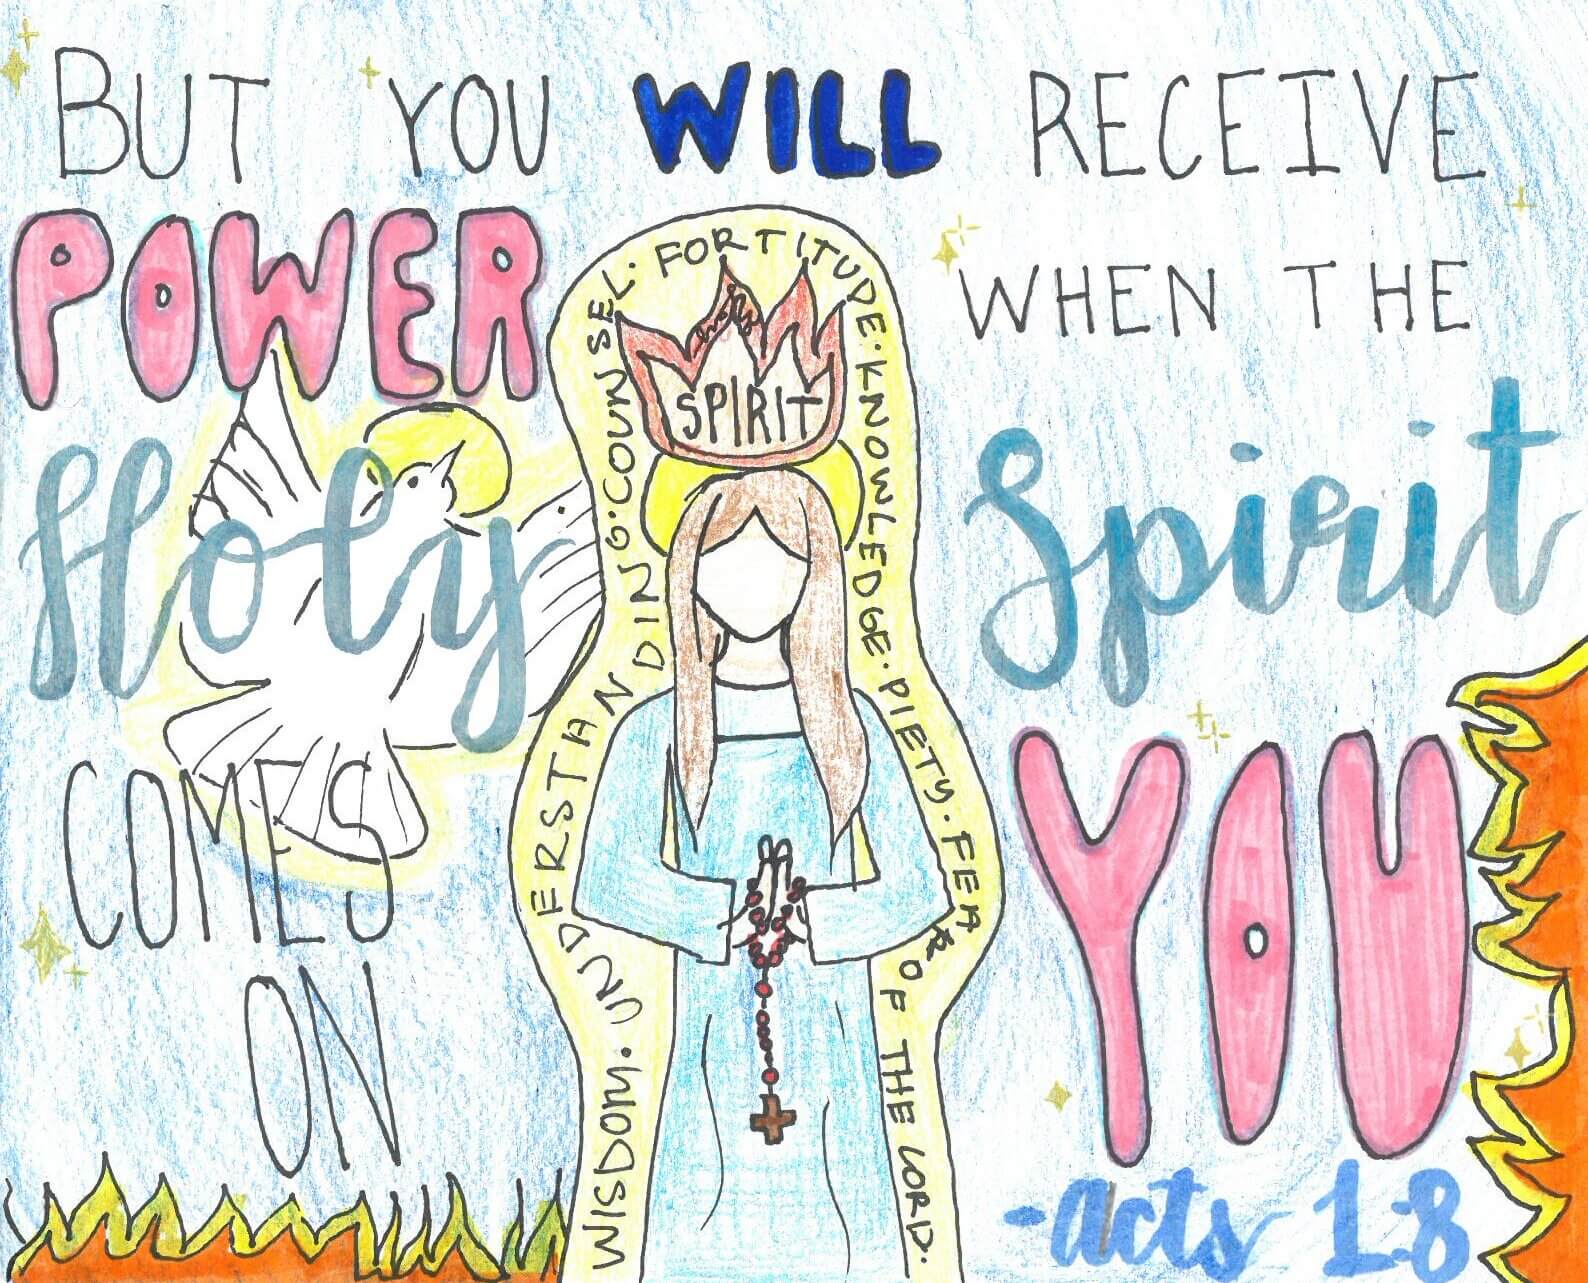 BUT YOU WILL RECEIVE
POWER
WHEN THE
Holy Spirit
COMES
ON
YOU
-acts 1:8
WISDOM. UNDERSTANDING. COUNSEL. FORTITUDE. KNOWLEDGE. PIETY. FEAR OF THE LORD.
Holy
SPIRIT